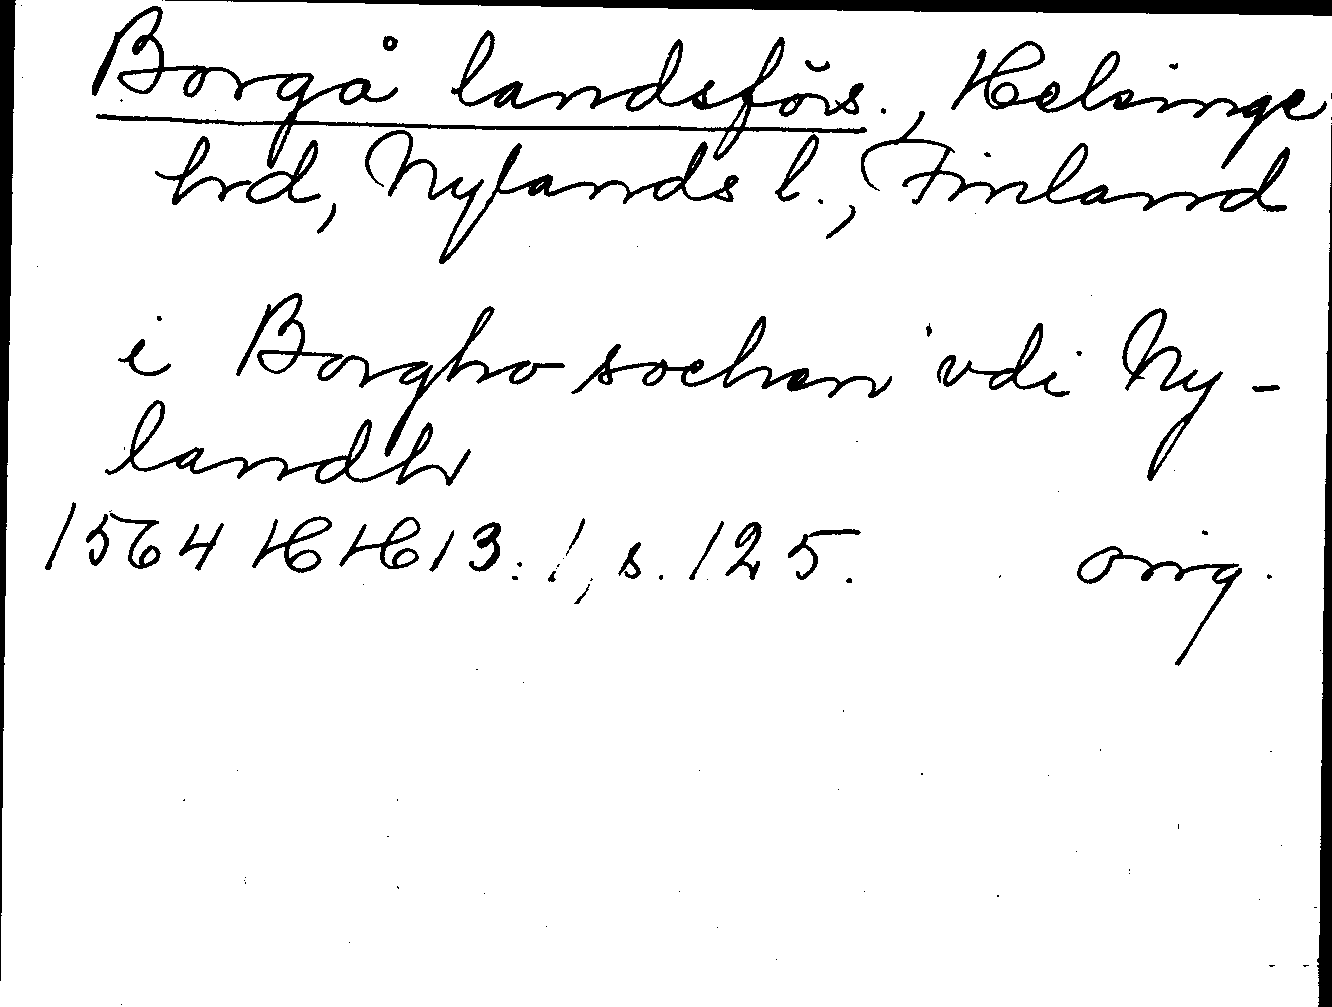 Borgå landsförs., Helsinge
hrd, Nylands l., Finland
i Borgho sochen vdi Ny-
landh
1564 HH 13:1, s. 125. orig.